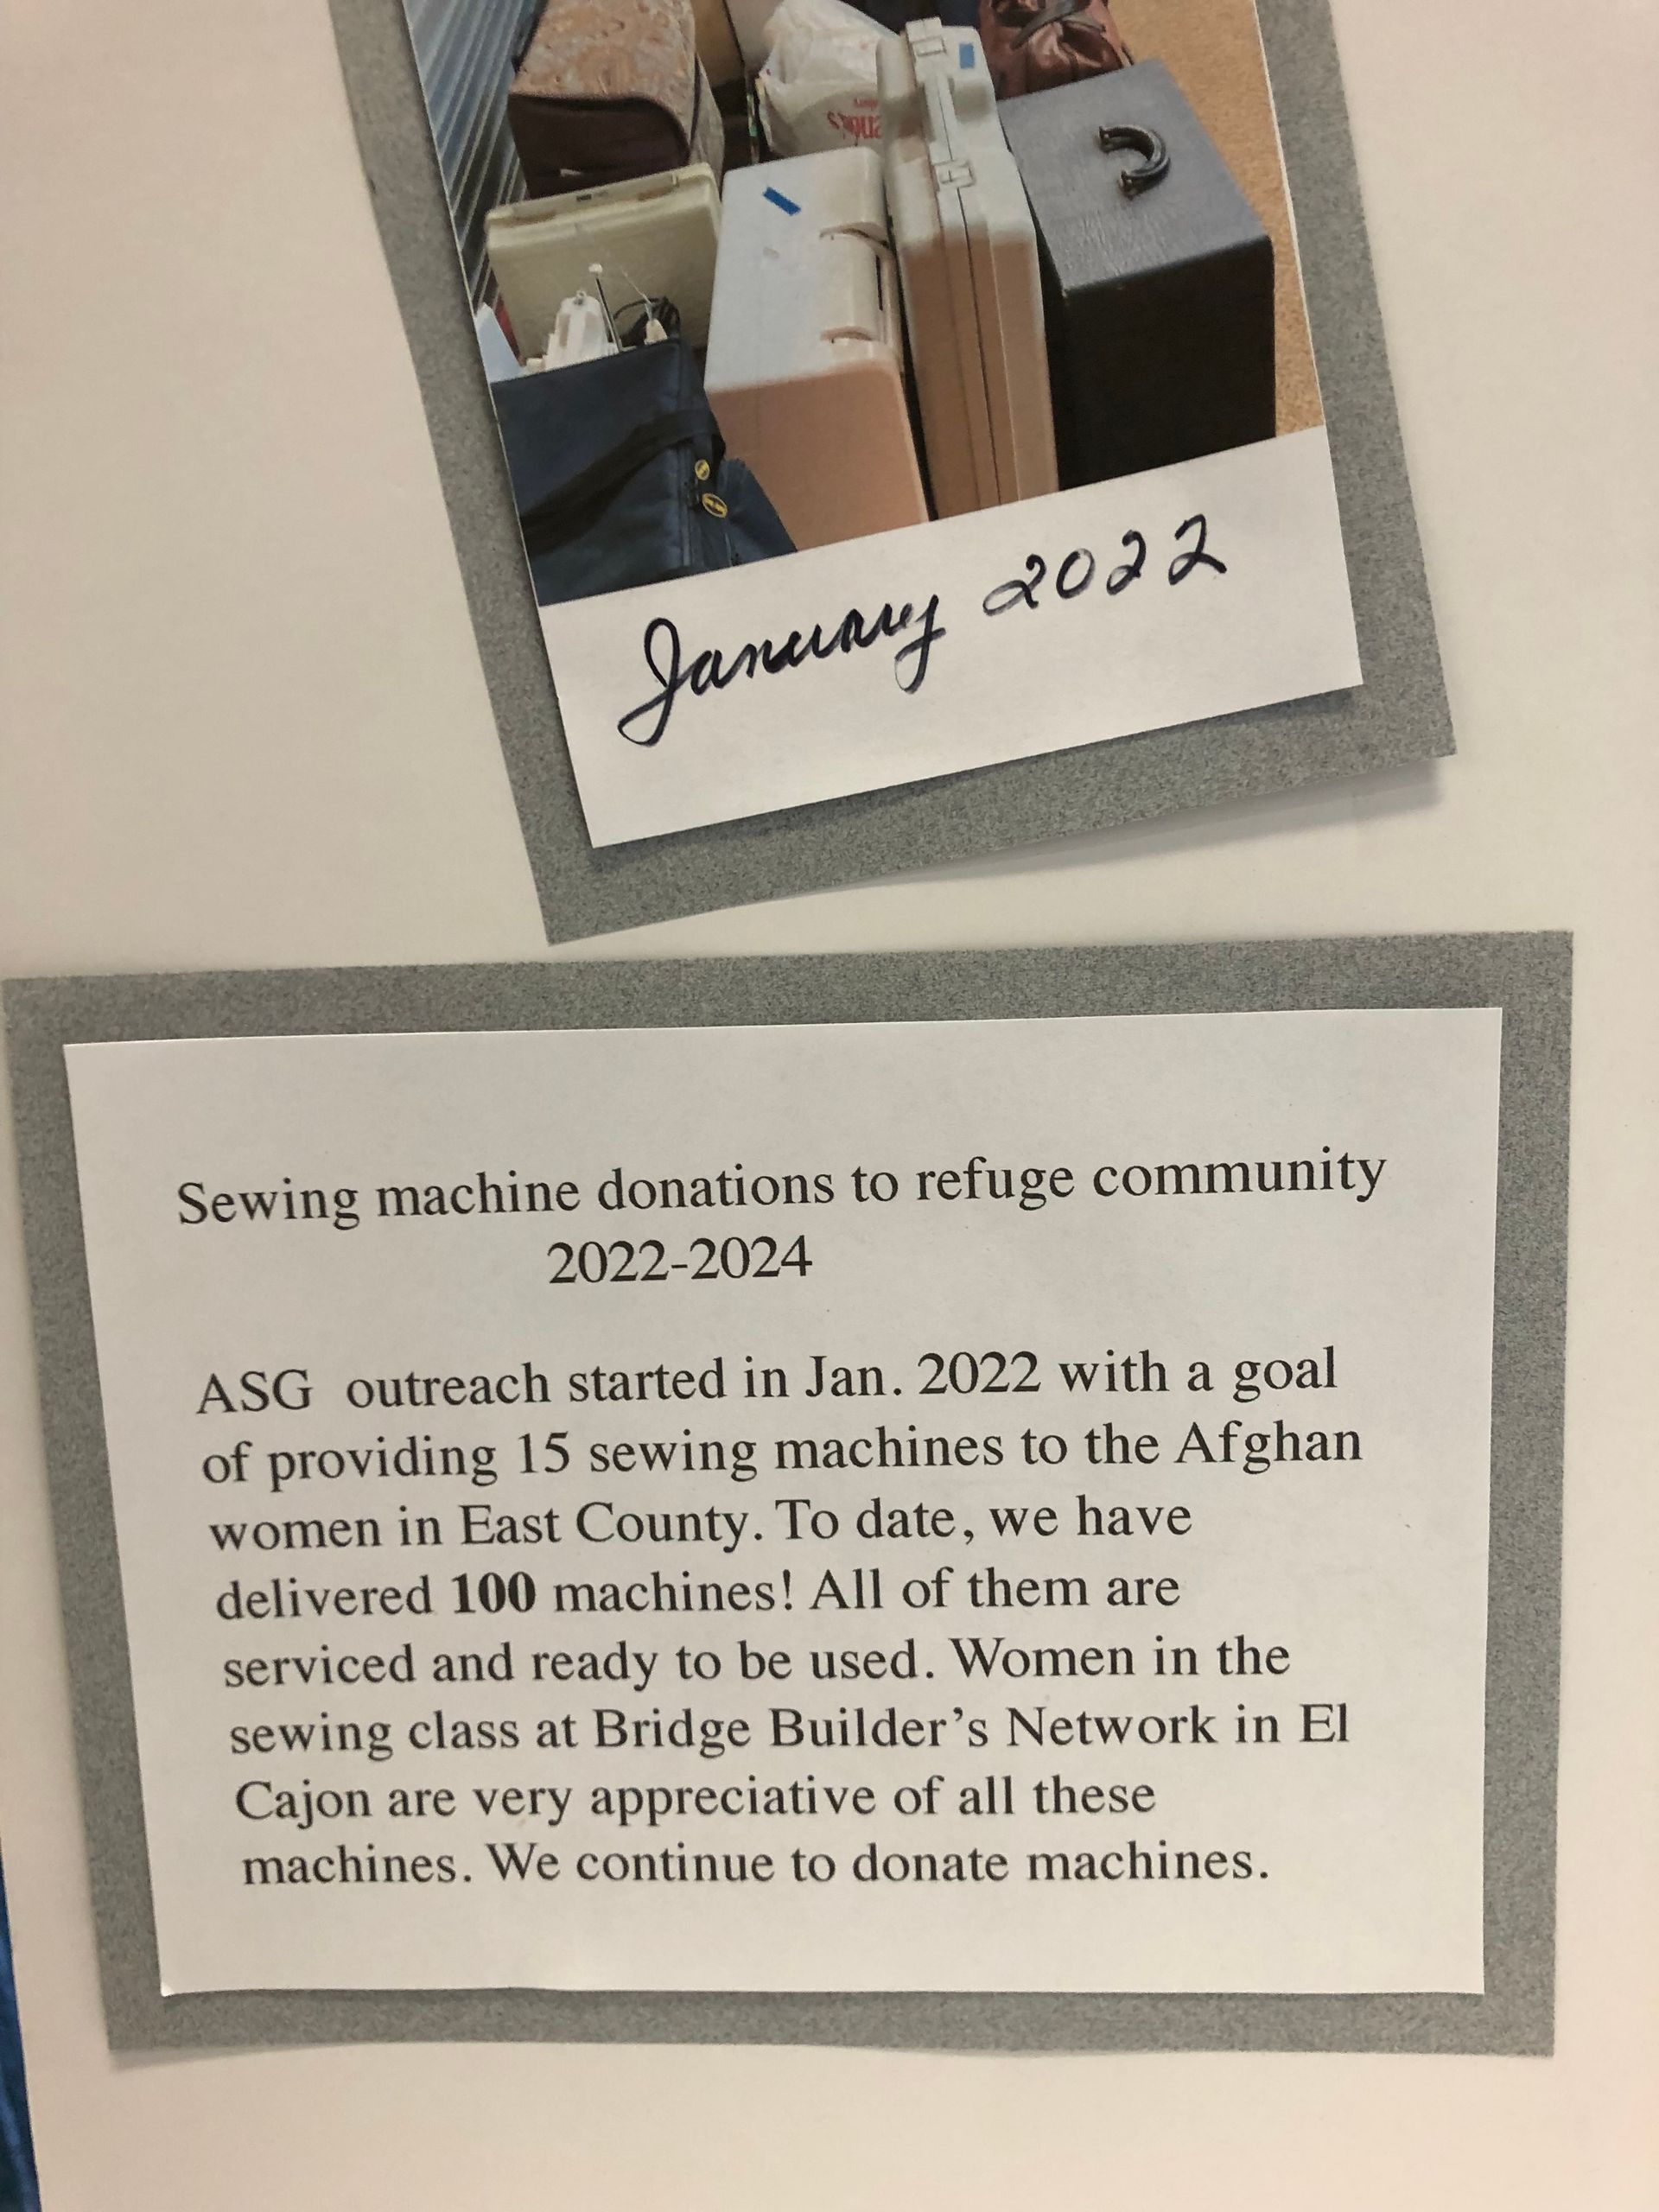 January 2022
Sewing machine donations to refuge community
2022-2024
ASG outreach started in Jan. 2022 with a goal
of providing 15 sewing machines to the Afghan
women in East County. To date, we have
delivered 100 machines! All of them are
serviced and ready to be used. Women in the
sewing class at Bridge Builder’s Network in El
Cajon are very appreciative of all these
machines. We continue to donate machines.